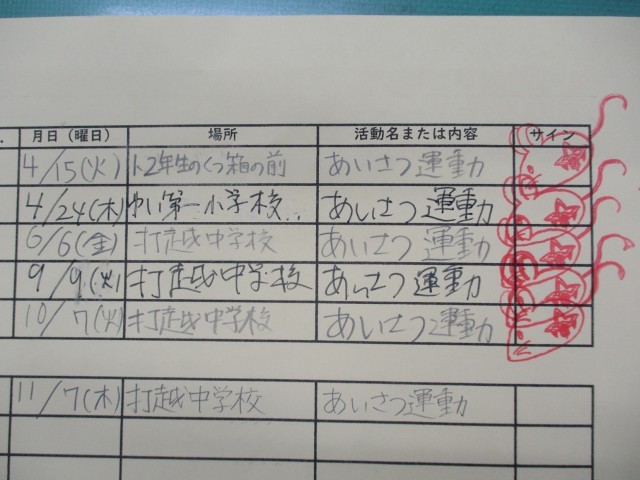 月日（曜日） 場所 活動名または内容 サイン
4/15(火) 2年生のくつ箱の前 あいさつ運動
4/24(木) 第一小学校 あいさつ運動
6/6(金) 打越中学校 あいさつ運動
9/9(火) 打越中学校 あいさつ運動
10/7(火) 打越中学校 あいさつ運動
11/7(木) 打越中学校 あいさつ運動